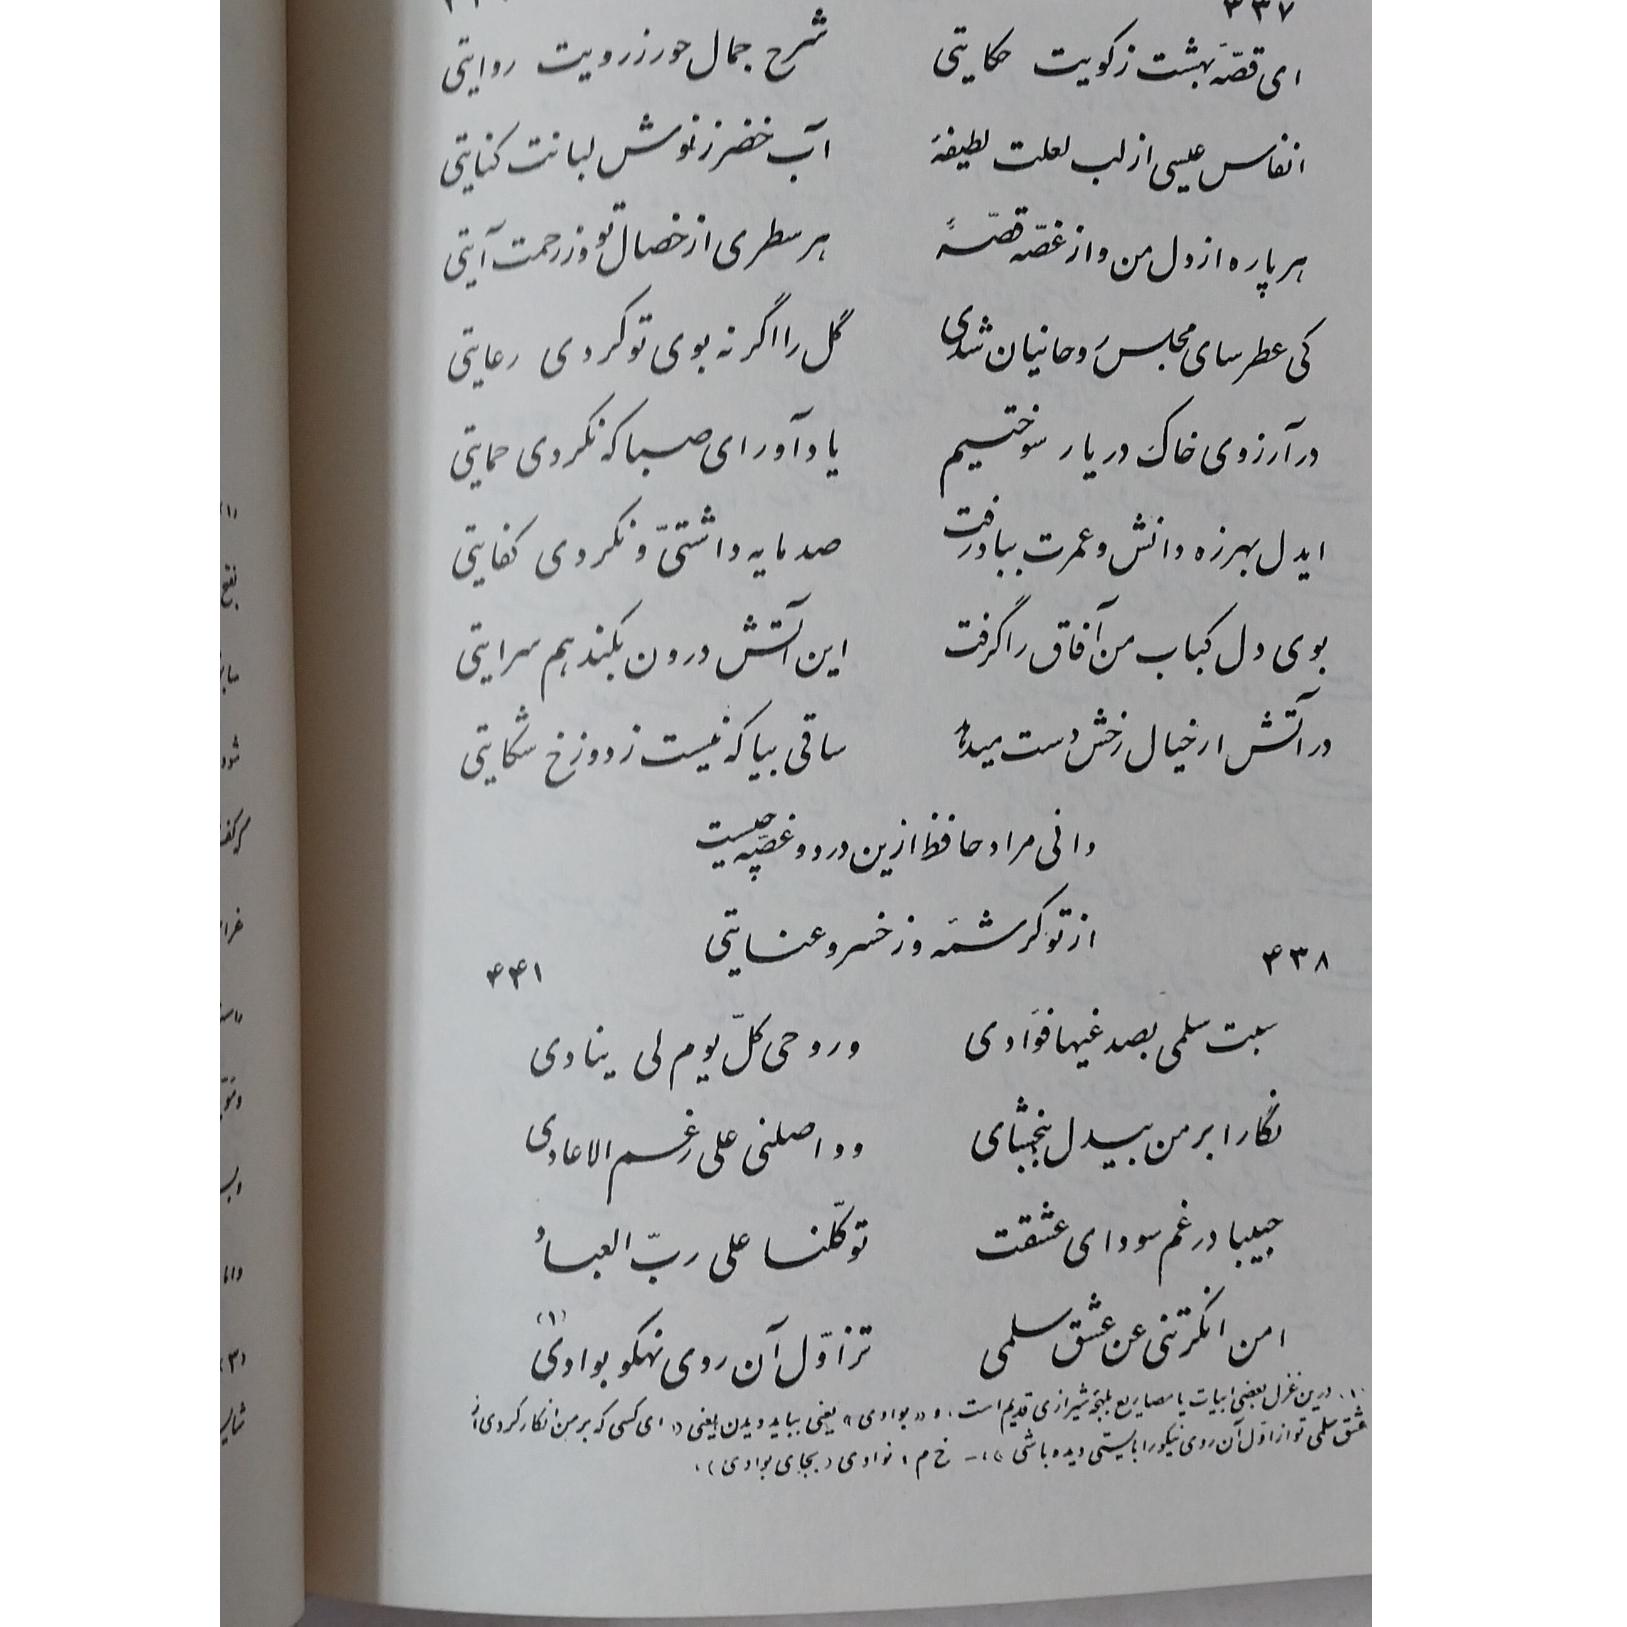 ۴۳۷
ای قصّه بهشت ز کویت حکایتی شرح جمال حور ز رویت روایتی
انفاس عیسی از لب لعلت لطیفهٔ آب خضر ز نوش لبانت کنایتی
هر پاره از دل من و از غصّه قصّهٔ هر سطری از خصال تو وز رحمت آیتی
کی عطرسای مجلس روحانیان شدی گل را اگر نه بوی تو کردی رعایتی
در آرزوی خاک در یار سوختیم یاد آور ای صبا که نکردی حمایتی
ایدل بهرزه دانش و عمرت بباد رفت صد مایه داشتیّ و نکردی کفایتی
بوی دل کباب من آفاق را گرفت این آتش درون بکند هم سرایتی
در آتش ار خیال رخش دست میدهد ساقی بیا که نیست ز دوزخ شکایتی
دانی مراد حافظ ازین درد و غصّه چیست
از تو کرشمهٔ و ز خسرو عنایتی
۴۳۸ ۴۴۱
سبت سلمی بصدغیها فؤادی و روحی کلّ یوم لی ینادی
نگارا بر من بیدل ببخشای و واصلنی علی رغم الاعادی
حبیبا در غم سودای عشقت توکّلنا علی ربّ العباد
امن انکرتنی عن عشق سلمی تزاوّل آن روی نهکو بوادی (۱)
(۱) درین غزل بعضی ابیات یا مصاریع بلهجهٔ شیرازی قدیم است، و «بوادی» یعنی بباید دیدن یعنی «ای کسی که بر من انکار کردی از
عشق سلمی تو از اوّل آن روی نیکو را بایستی دیده باشی»، – خ م: نوادی (بجای بوادی)،